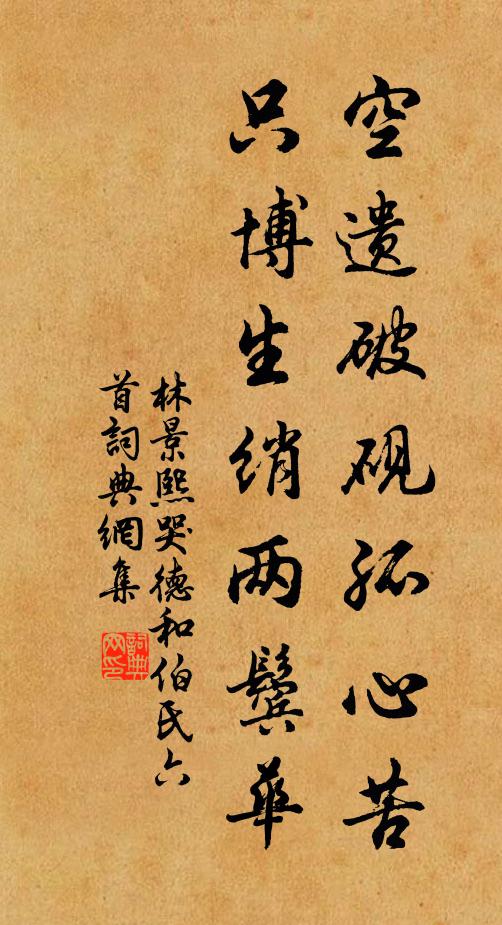 空遗破砚孤心苦
只博生绡两鬓华
林景熙哭德和伯氏六
首詞典網集
詞典
网印